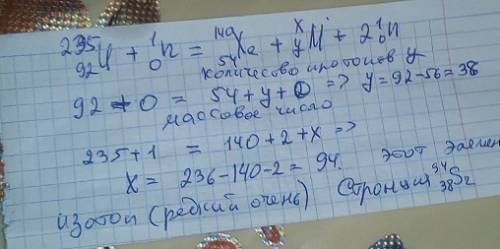 ²³⁵₉₂U + ¹₀n = ¹⁴⁰₅₄Xe + ˣᵧM + 2¹₀n
количество протонов y
92 + 0 = 54 + y + 0 => y = 92 - 56 = 38
массовое число
235 + 1 = 140 + 2 + x =>
x = 236 - 140 - 2 = 94. этот элемен
изотоп (редкий очень) Стронция ⁹⁴₃₈Sr